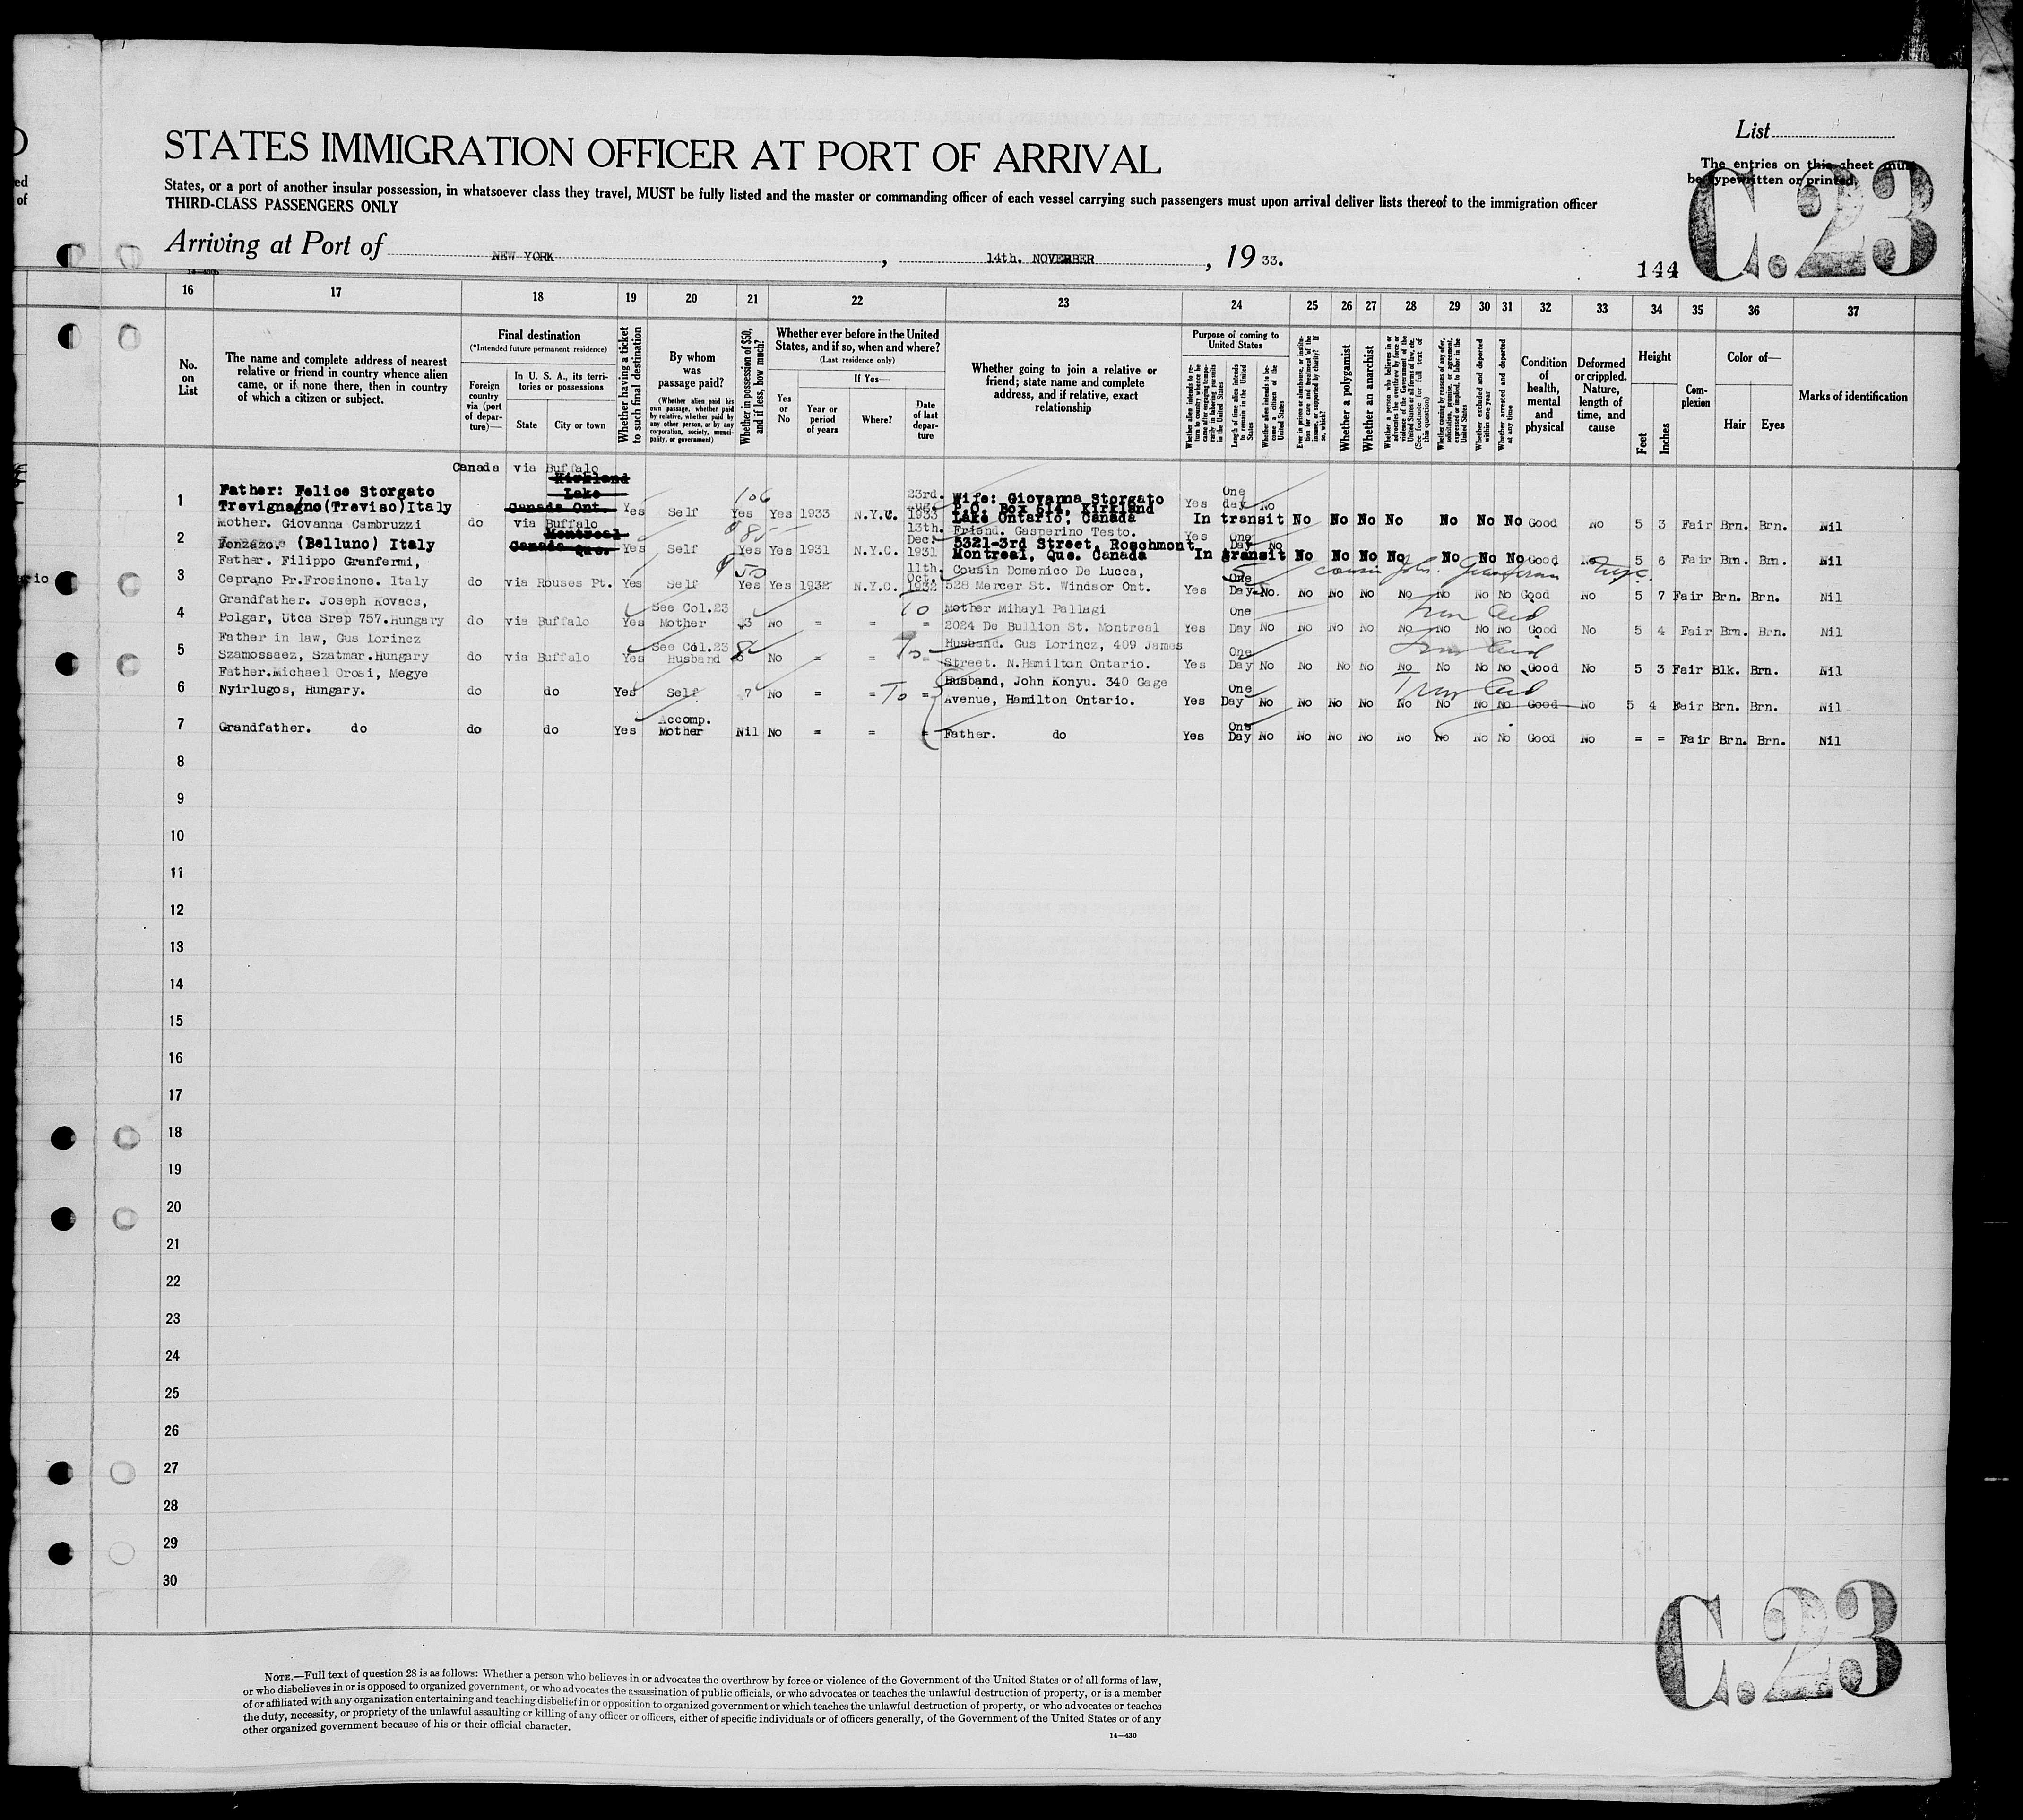 List
The entries on this sheet must
be typewritten or printed
C.23
STATES IMMIGRATION OFFICER AT PORT OF ARRIVAL
States, or a port of another insular possession, in whatsoever class they travel, MUST be fully listed and the master or commanding officer of each vessel carrying such passengers must upon arrival deliver lists thereof to the immigration officer
THIRD-CLASS PASSENGERS ONLY
Arriving at Port of NEW YORK, 14th. NOVEMBER, 19 33.
144
16 17 18 19 20 21 22 23 24 25 26 27 28 29 30 31 32 33 34 35 36 37
No. on List
The name and complete address of nearest relative or friend in country whence alien came, or if none there, then in country of which a citizen or subject.
Final destination
(*Intended future permanent residence)
Foreign country via (port of departure)—
In U. S. A., its territories or possessions
State
City or town
Whether having a ticket to such final destination
By whom was passage paid?
(Whether alien paid his own passage, whether paid by relative, whether paid by any other person, or by any corporation, society, municipality, or government)
Whether in possession of $50, and if less, how much?
Whether ever before in the United States, and if so, when and where?
(Last residence only)
Yes or No
If Yes—
Year or period of years
Where?
Date of last departure
Whether going to join a relative or friend; state name and complete address, and if relative, exact relationship
Purpose of coming to United States
Whether alien intends to return to country whence he came after engaging temporarily in laboring pursuits in the United States
Length of time alien intends to remain in the United States
Whether alien intends to become a citizen of the United States
Ever in prison or almshouse, or institution for care and treatment of the insane, or supported by charity? If so, which?
Whether a polygamist
Whether an anarchist
Whether a person who believes in or advocates the overthrow by force or violence of the Government of the United States or all forms of law, etc. (See footnote for full text of this question)
Whether coming by reasons of any offer, solicitation, promise, or agreement, expressed or implied, to labor in the United States
Whether excluded and deported within one year
Whether arrested and deported at any time
Condition of health, mental and physical
Deformed or crippled. Nature, length of time, and cause
Height
Feet
Inches
Complexion
Color of—
Hair
Eyes
Marks of identification
Canada via Buffalo
Kirkland
Lake
Canada Ont.
1 Father: Felice Storgato
Trevignagno (Treviso) Italy
Yes Self 106 Yes Yes 1933 N.Y.C. 23rd. Aug. 1933
Wife: Giovanna Storgato
P.O. Box 614, Kirkland
Lake Ontario, Canada
Yes One day No In transit No No No No No No No Good No 5 3 Fair Brn. Brn. Nil
2 Mother. Giovanna Cambruzzi
Fonzazo. (Belluno) Italy
do via Buffalo
Montreal
Canada Que.
Yes Self 85 Yes Yes 1931 N.Y.C. 13th. Dec. 1931
Friend. Gasperino Testo.
5321-3rd Street, Rosehmont
Montreal, Que. Canada
Yes One Day No In transit No No No No No No No Good No 5 6 Fair Brn. Brn. Nil
3 Father. Filippo Granfermi,
Ceprano Pr.Frosinone. Italy
do via Rouses Pt. Yes Self 50 Yes Yes 1932 N.Y.C. 11th. Oct. 1932
Cousin Domenico De Lucca,
528 Mercer St. Windsor Ont.
Yes One Day No. 5 cousin No No No No No No No Good No 5 7 Fair Brn. Brn. Nil
4 Grandfather. Joseph Kovacs,
Polgar, Utca Srep 757.Hungary
do via Buffalo Yes See Col.23 Mother 3 No = = = To
Mother Mihayl Pallagi
2024 De Bullion St. Montreal
Yes One Day No No No No No No No No Good No 5 4 Fair Brn. Brn. Nil
5 Father in law, Gus Lorincz
Szamossaez, Szatmar.Hungary
do via Buffalo Yes See Col.23 Husband No = = = To
Husband. Gus Lorincz, 409 James
Street. N.Hamilton Ontario.
Yes One Day No No No No No No No No Good No 5 3 Fair Blk. Brn. Nil
6 Father.Michael Orosi, Megye
Nyirlugos, Hungary.
do do Yes Self 7 No = = = To
Husband, John Konyu. 340 Gage
Avenue, Hamilton Ontario.
Yes One Day No No No No No No No No Good No 5 4 Fair Brn. Brn. Nil
7 Grandfather. do
do do Yes Accomp. Mother Nil No = = =
Father. do
Yes One Day No No No No No No No No Good No = = Fair Brn. Brn. Nil
8
9
10
11
12
13
14
15
16
17
18
19
20
21
22
23
24
25
26
27
28
29
30
C.23
NOTE.—Full text of question 28 is as follows: Whether a person who believes in or advocates the overthrow by force or violence of the Government of the United States or of all forms of law,
or who disbelieves in or is opposed to organized government, or who advocates the assassination of public officials, or who advocates or teaches the unlawful destruction of property, or is a member
of or affiliated with any organization entertaining and teaching disbelief in or opposition to organized government or which teaches the unlawful destruction of property, or who advocates or teaches
the duty, necessity, or propriety of the unlawful assaulting or killing of any officer or officers, either of specific individuals or of officers generally, of the Government of the United States or of any
other organized government because of his or their official character.
14—430